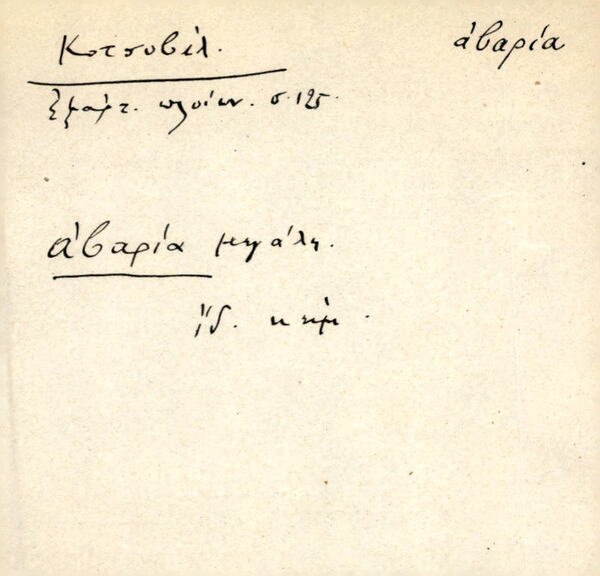 Κοτσοβίλ.
ἀβαρία
ἐξαρτ. πλοίων. σ. 125.
ἀβαρία μεγάλη.
ἴδ. κείμ.